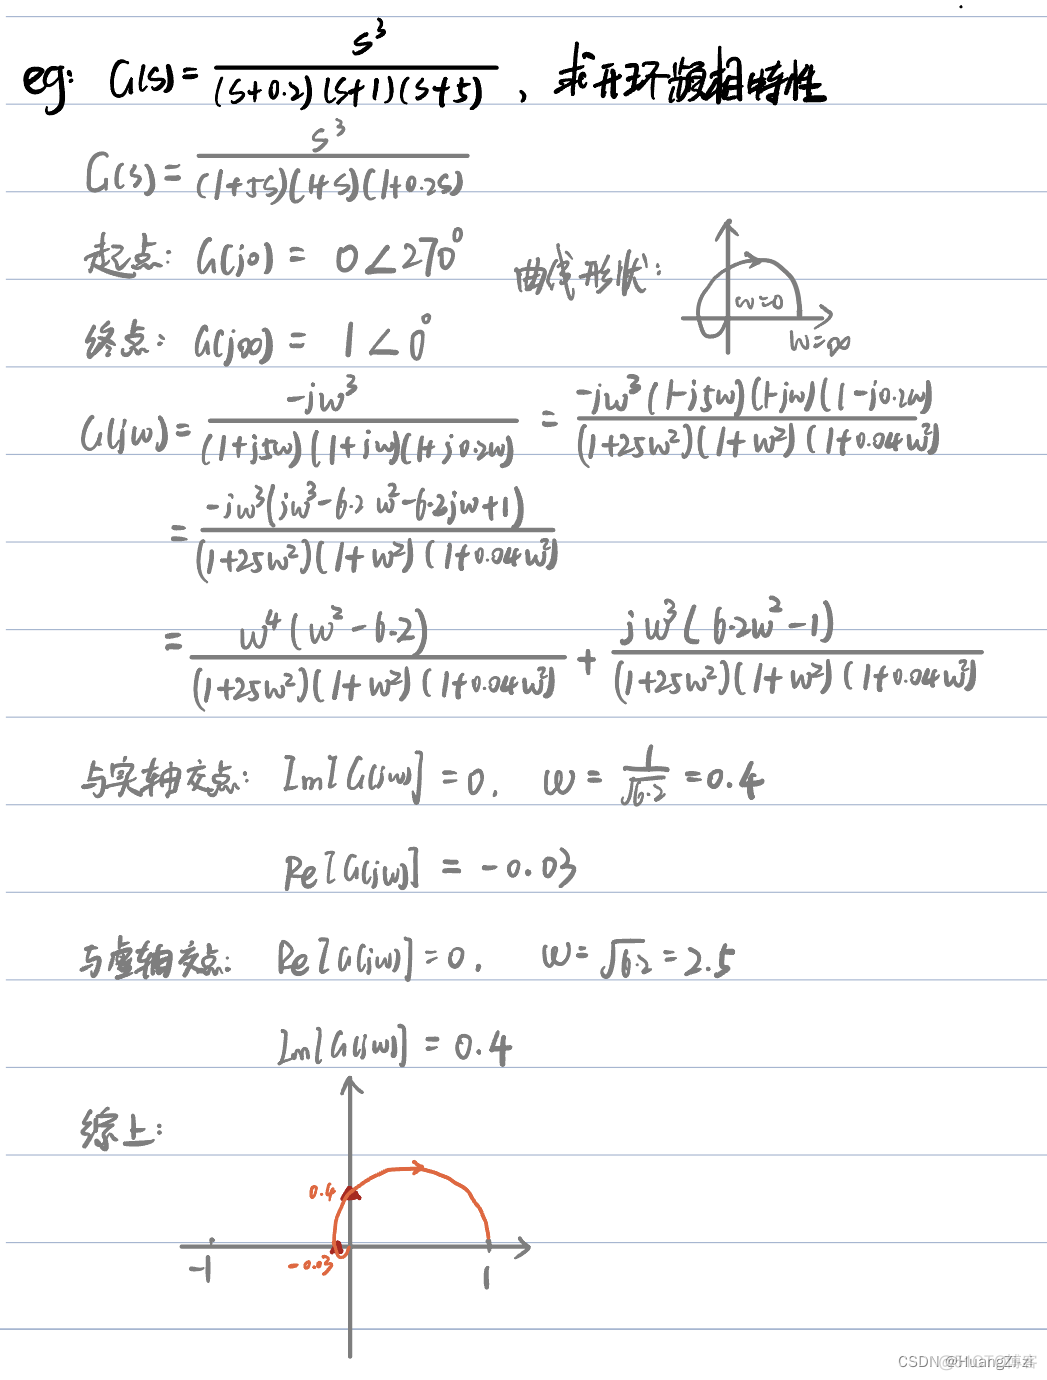 eg: G(s) = s³ / (s+0.2)(s+1)(s+5) , 求开环频相特性
G(s) = s³ / (1+5s)(1+s)(1+0.2s)
起点: G(j0) = 0∠270° 曲线形状:
w=0
w=∞
终点: G(j∞) = 1∠0°
G(jw) = -jw³ / (1+j5w)(1+jw)(1+j0.2w) = -jw³(1-j5w)(1-jw)(1-j0.2w) / (1+25w²)(1+w²)(1+0.04w²)
= -jw³(jw³-6.2w²-6.2jw+1) / (1+25w²)(1+w²)(1+0.04w²)
= w⁴(w²-6.2) / (1+25w²)(1+w²)(1+0.04w²) + jw³(6.2w²-1) / (1+25w²)(1+w²)(1+0.04w²)
与实轴交点: Im[G(jw)] = 0, w = 1/√6.2 = 0.4
Re[G(jw)] = -0.03
与虚轴交点: Re[G(jw)] = 0, w = √6.2 = 2.5
Im[G(jw)] = 0.4
综上:
0.4
-0.03
-1
1
CSDN @HuangZi.zi